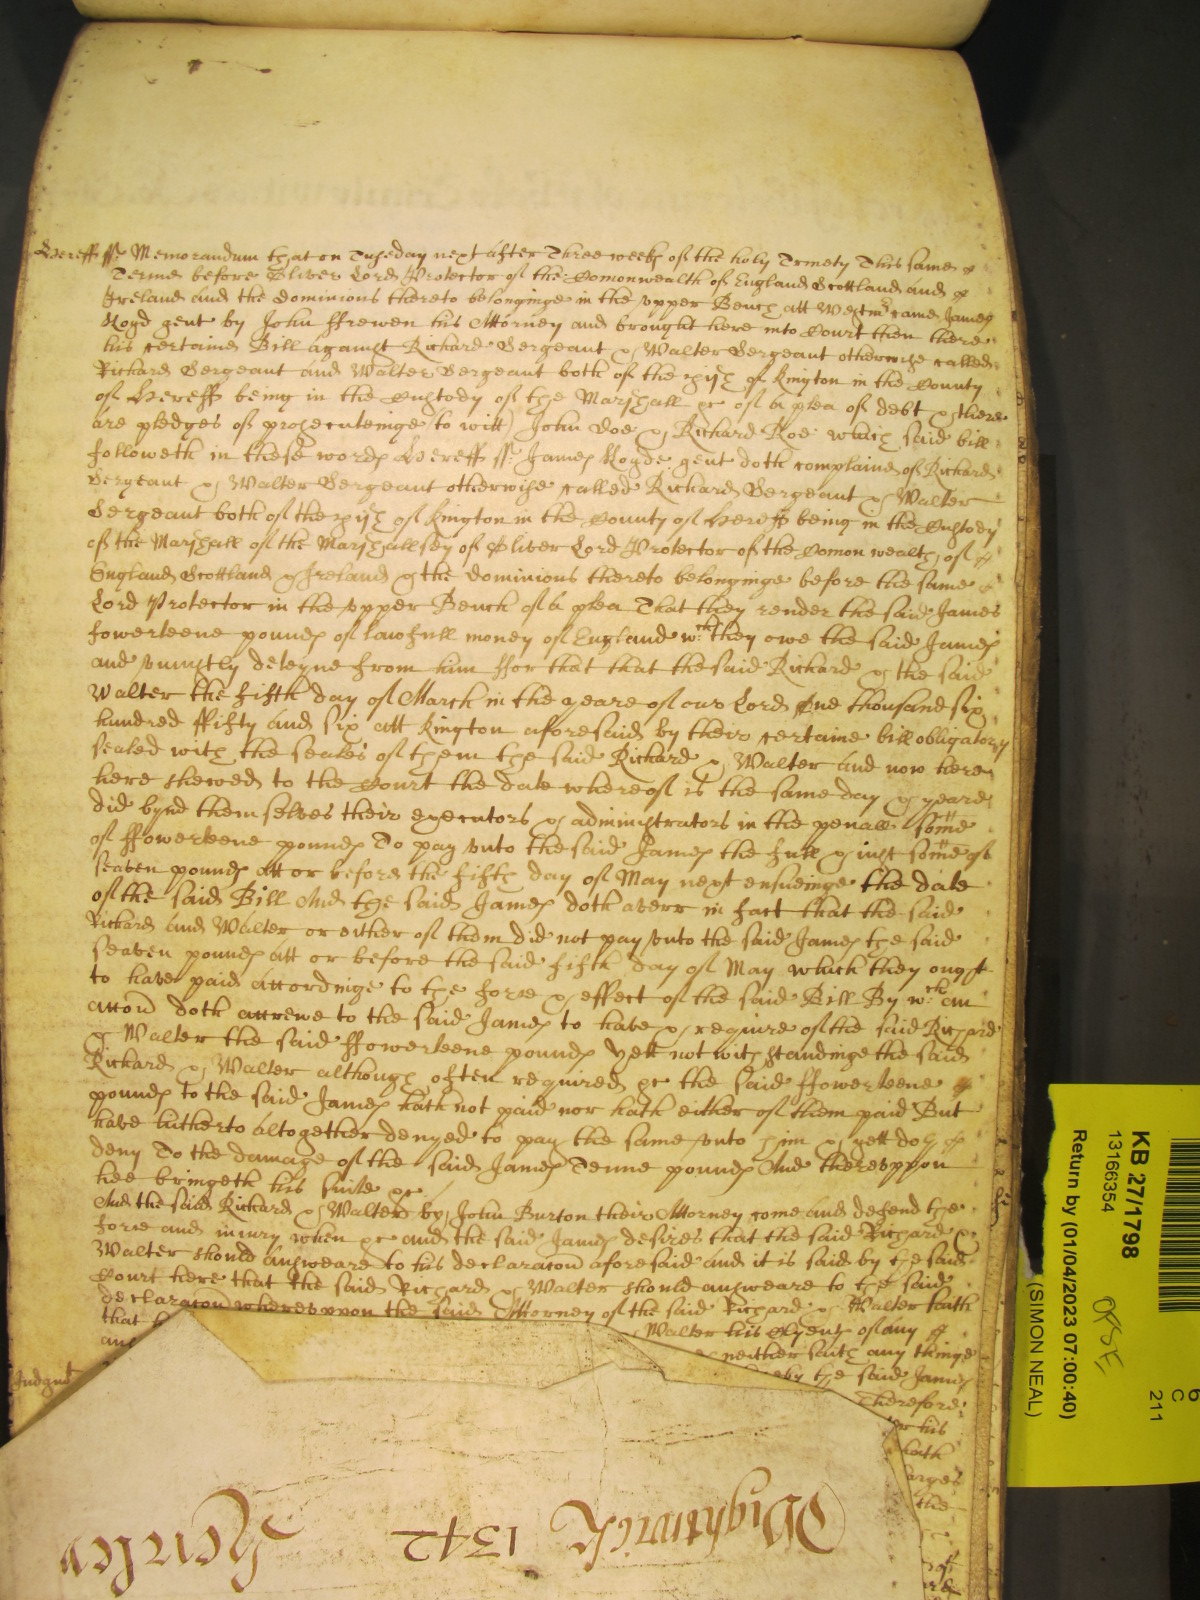 Hereff ss Memorandum that on Tuseday next after Three weeks of the holy Trinety This same
Terme before Oliver Lord Protector of the Comonwealth of England Scottland and
Ireland and the dominions thereto belonginge in the upper Bench att Westmr came James
Lloyd gent by John ffrewen his Attorney and brought here into Court then there
his certaine Bill against Richard Sergeant & Walter Sergeant otherwise called
Richard Sergeant and Walter Sergeant both of the of Kington in the County
of Hereff being in the Custody of the Marshall &c of a plea of debt & there
are pledges of prosecuteinge to witt John Doe & Richard Roe which said bill
followeth in these words Hereff ss James Lloyde gent doth complaine of Richard
Sergeant & Walter Sergeant otherwise called Richard Sergeant & Walter
Sergeant both of the of Kington in the County of Hereff being in the Custody
of the Marshall of the Marshallsey of Oliver Lord Protector of the Comon wealth of
England Scottland & Ireland & the dominions thereto belonginge before the same
Lord Protector in the upper Bench of a plea That they render the said James
fowerteene pounds of lawfull money of England wch they owe the said James
and uniustly deteyne from him ffor that that the said Richard & the said
Walter the fifth day of March in the yeare of our Lord One thousand six
hundred ffifty and six att Kington aforesaid by their certaine bill obligatory
sealed with the seales of them the said Richard & Walter and now here
here shewed to the Court the date whereof is the same day & yeare
did bynd themselves their executors & administrators in the penall some
of ffowerteene pounds To pay unto the said James the full & iust some of
seaven pounds att or before the fifth day of May next ensueinge the date
of the said Bill And the said James doth averr in fact that the said
Richard and Walter or either of them did not pay unto the said James the said
seaven pounds att or before the said fifth day of May which they ought
to have paid accordinge to the force & effect of the said Bill By wch an
accon doth accrewe to the said James to have & require of the said Richard
& Walter the said ffowerteene pounds yett notwithstandinge the said
Richard & Walter although often required &c the said ffowerteene
pounds to the said James hath not paid nor hath either of them paid But
have hitherto altogether denyed to pay the same unto him & yett doth
deny To the damage of the said James Tenne pounds And thereuppon
hee bringeth his suite &c
And the said Richard & Walter by John Burton their Attorney come and defend the
force and iniury when &c and the said James desires that the said Richard &
Walter should answeare to his declaracon aforesaid and it is said by the said
Court here that the said Richard & Walter should answeare to the said
declaracon whereuppon the said Attorney of the said Richard & Walter saith
that Walter his Clyents of any
and neither saith any thinge
by the said James
Judgmt
Therefore
his
hath
arges
the
Wightwick 1342 Henley
KB 27/1798
13166354
Return by (01/04/2023 07:00:40)
(SIMON NEAL)
6
C
211